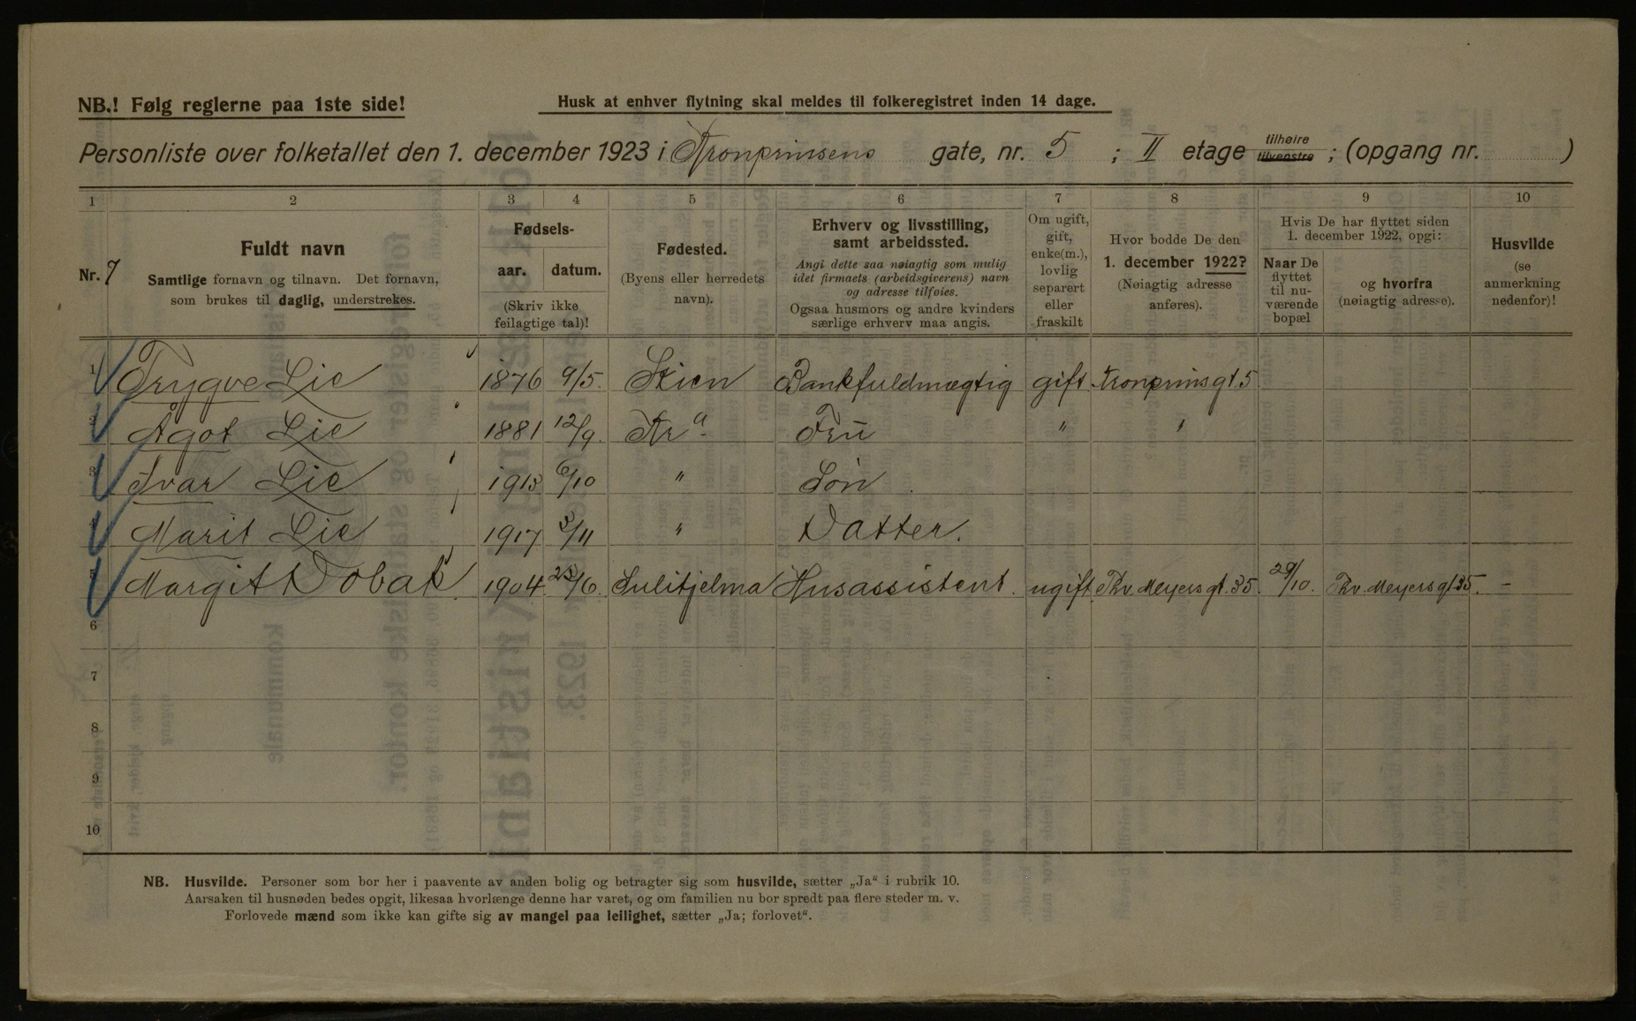 NB.! Følg reglerne paa 1ste side!
Husk at enhver flytning skal meldes til folkeregistret inden 14 dage.
Personliste over folketallet den 1. december 1923 i Kronprinsens gate, nr. 5 ; II etage tilhøire tilvenstre ; (opgang nr. )
1 2 3 4 5 6 7 8 9 10
Nr. 7
Fuldt navn
Samtlige fornavn og tilnavn. Det fornavn,
som brukes til daglig, understrekes.
Fødsels-
aar. datum.
(Skriv ikke
feilagtige tal)!
Fødested.
(Byens eller herredets
navn).
Erhverv og livsstilling,
samt arbeidssted.
Angi dette saa nøiagtig som mulig
idet firmaets (arbeidsgiverens) navn
og adresse tilføies.
Ogsaa husmors og andre kvinders
særlige erhverv maa angis.
Om ugift,
gift,
enke(m.),
lovlig
separert
eller
fraskilt
Hvor bodde De den
1. december 1922?
(Nøiagtig adresse
anføres).
Hvis De har flyttet siden
1. december 1922, opgi:
Naar De
flyttet
til nu-
værende
bopæl
og hvorfra
(nøiagtig adresse).
Husvilde
(se
anmerkning
nedenfor)!
1 Trygve Lie 1876 9/5. Skien Bankfuldmægtig gift Kronprinsgt. 5
2 Ågot Lie 1881 12/9. Kr.a Fru " "
3 Ivar Lie 1913 6/10 " Søn
4 Marit Lie 1917 3/11 " Datter.
5 Margit Dobak 1904 /6. Sulitjelma Husassistent. ugift Thv. Meyers gt. 35. 29/10. Thv. Meyers gt 35. –
6
7
8
9
10
NB. Husvilde. Personer som bor her i paavente av anden bolig og betragter sig som husvilde, sætter „Ja“ i rubrik 10.
Aarsaken til husnøden bedes opgit, likesaa hvorlænge denne har varet, og om familien nu bor spredt paa flere steder m. v.
Forlovede mænd som ikke kan gifte sig av mangel paa leilighet, sætter „Ja; forlovet“.